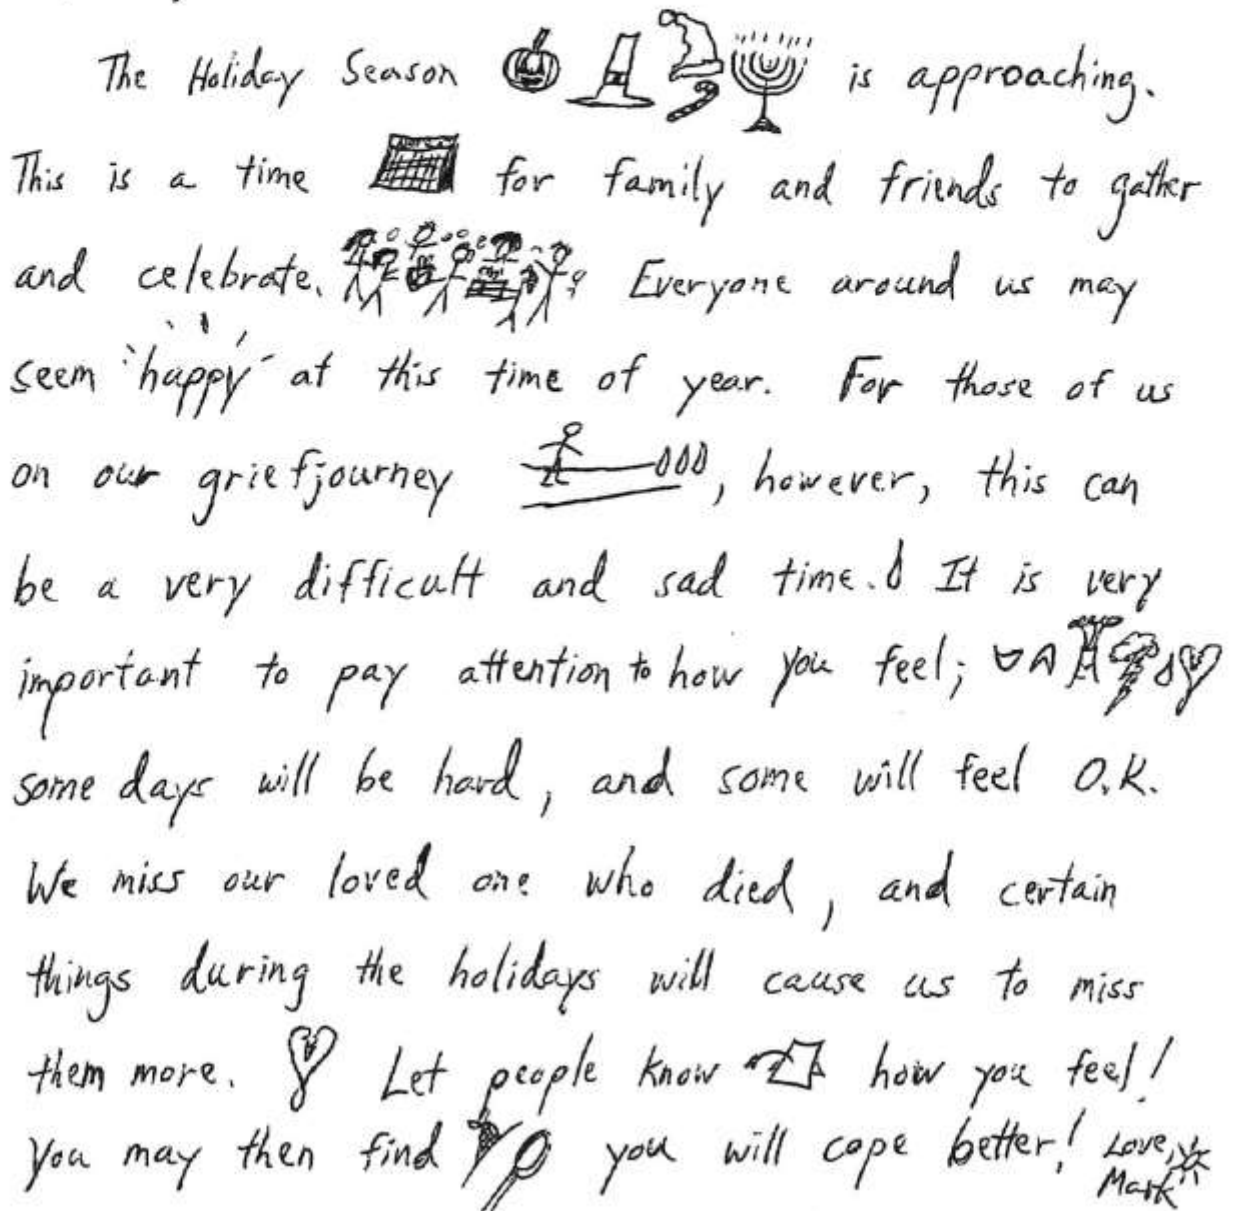 The Holiday Season is approaching.
This is a time for family and friends to gather
and celebrate. Everyone around us may
seem happy at this time of year. For those of us
on our griefjourney, however, this can
be a very difficult and sad time. It is very
important to pay attention to how you feel;
some days will be hard, and some will feel O.K.
We miss our loved one who died, and certain
things during the holidays will cause us to miss
them more. Let people know how you feel!
You may then find you will cope better! Love,
Mark